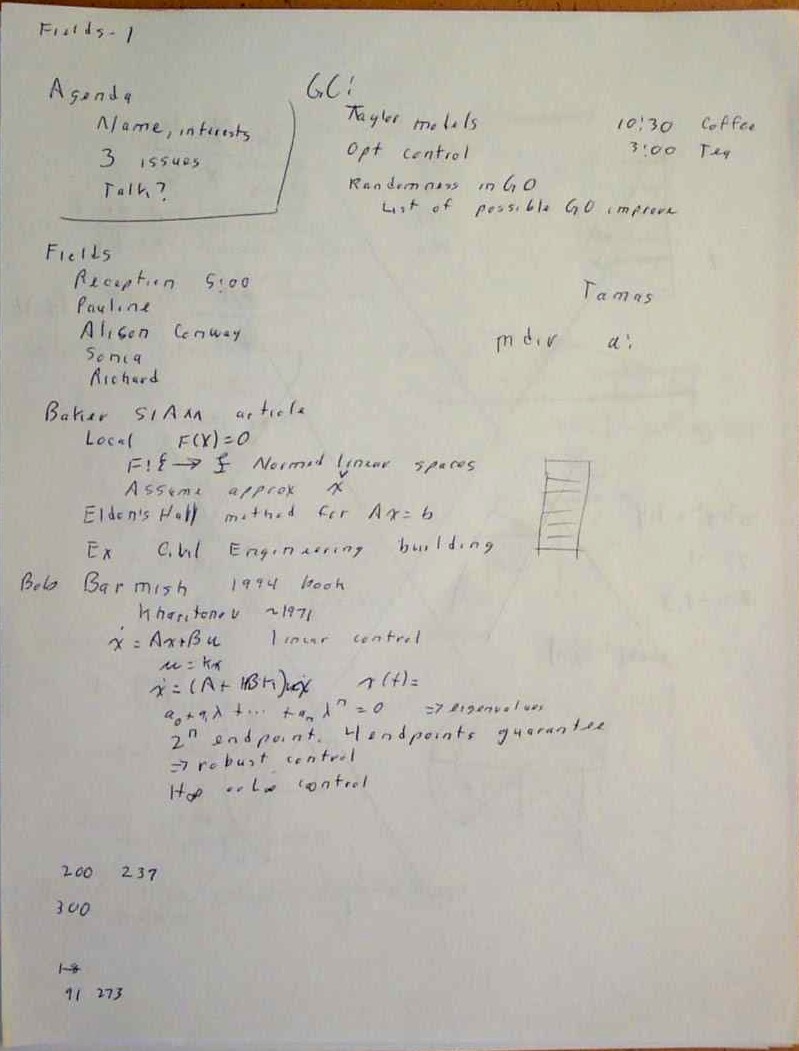 Fields-1
Agenda
Name, interests
3 issues
Talk?
GC:
Taylor models
Opt control
Randomness in GO
List of possible GO improve
10:30 Coffee
3:00 Tea
Fields
Reception 5:00
Pauline
Alison Conway
Sonia
Richard
Tamas
mdiv a:
Baker SIAM article
Local F(X)=0
F: → Normed linear spaces
Assume approx x̌
Elden's Hall method for Ax=b
Ex Civil Engineering building
Bob Barmish 1994 book
Kharitonov ~1971
ẋ = Ax+Bu linear control
u = kx
ẋ = (A+BK)x x(t)=
a₀+a₁λ+...+aₙλⁿ=0 ⇒ eigenvalues
2ⁿ endpoint. 4 endpoints guarantee
⇒ robust control
H∞ or L∞ control
200 237
300
91 273